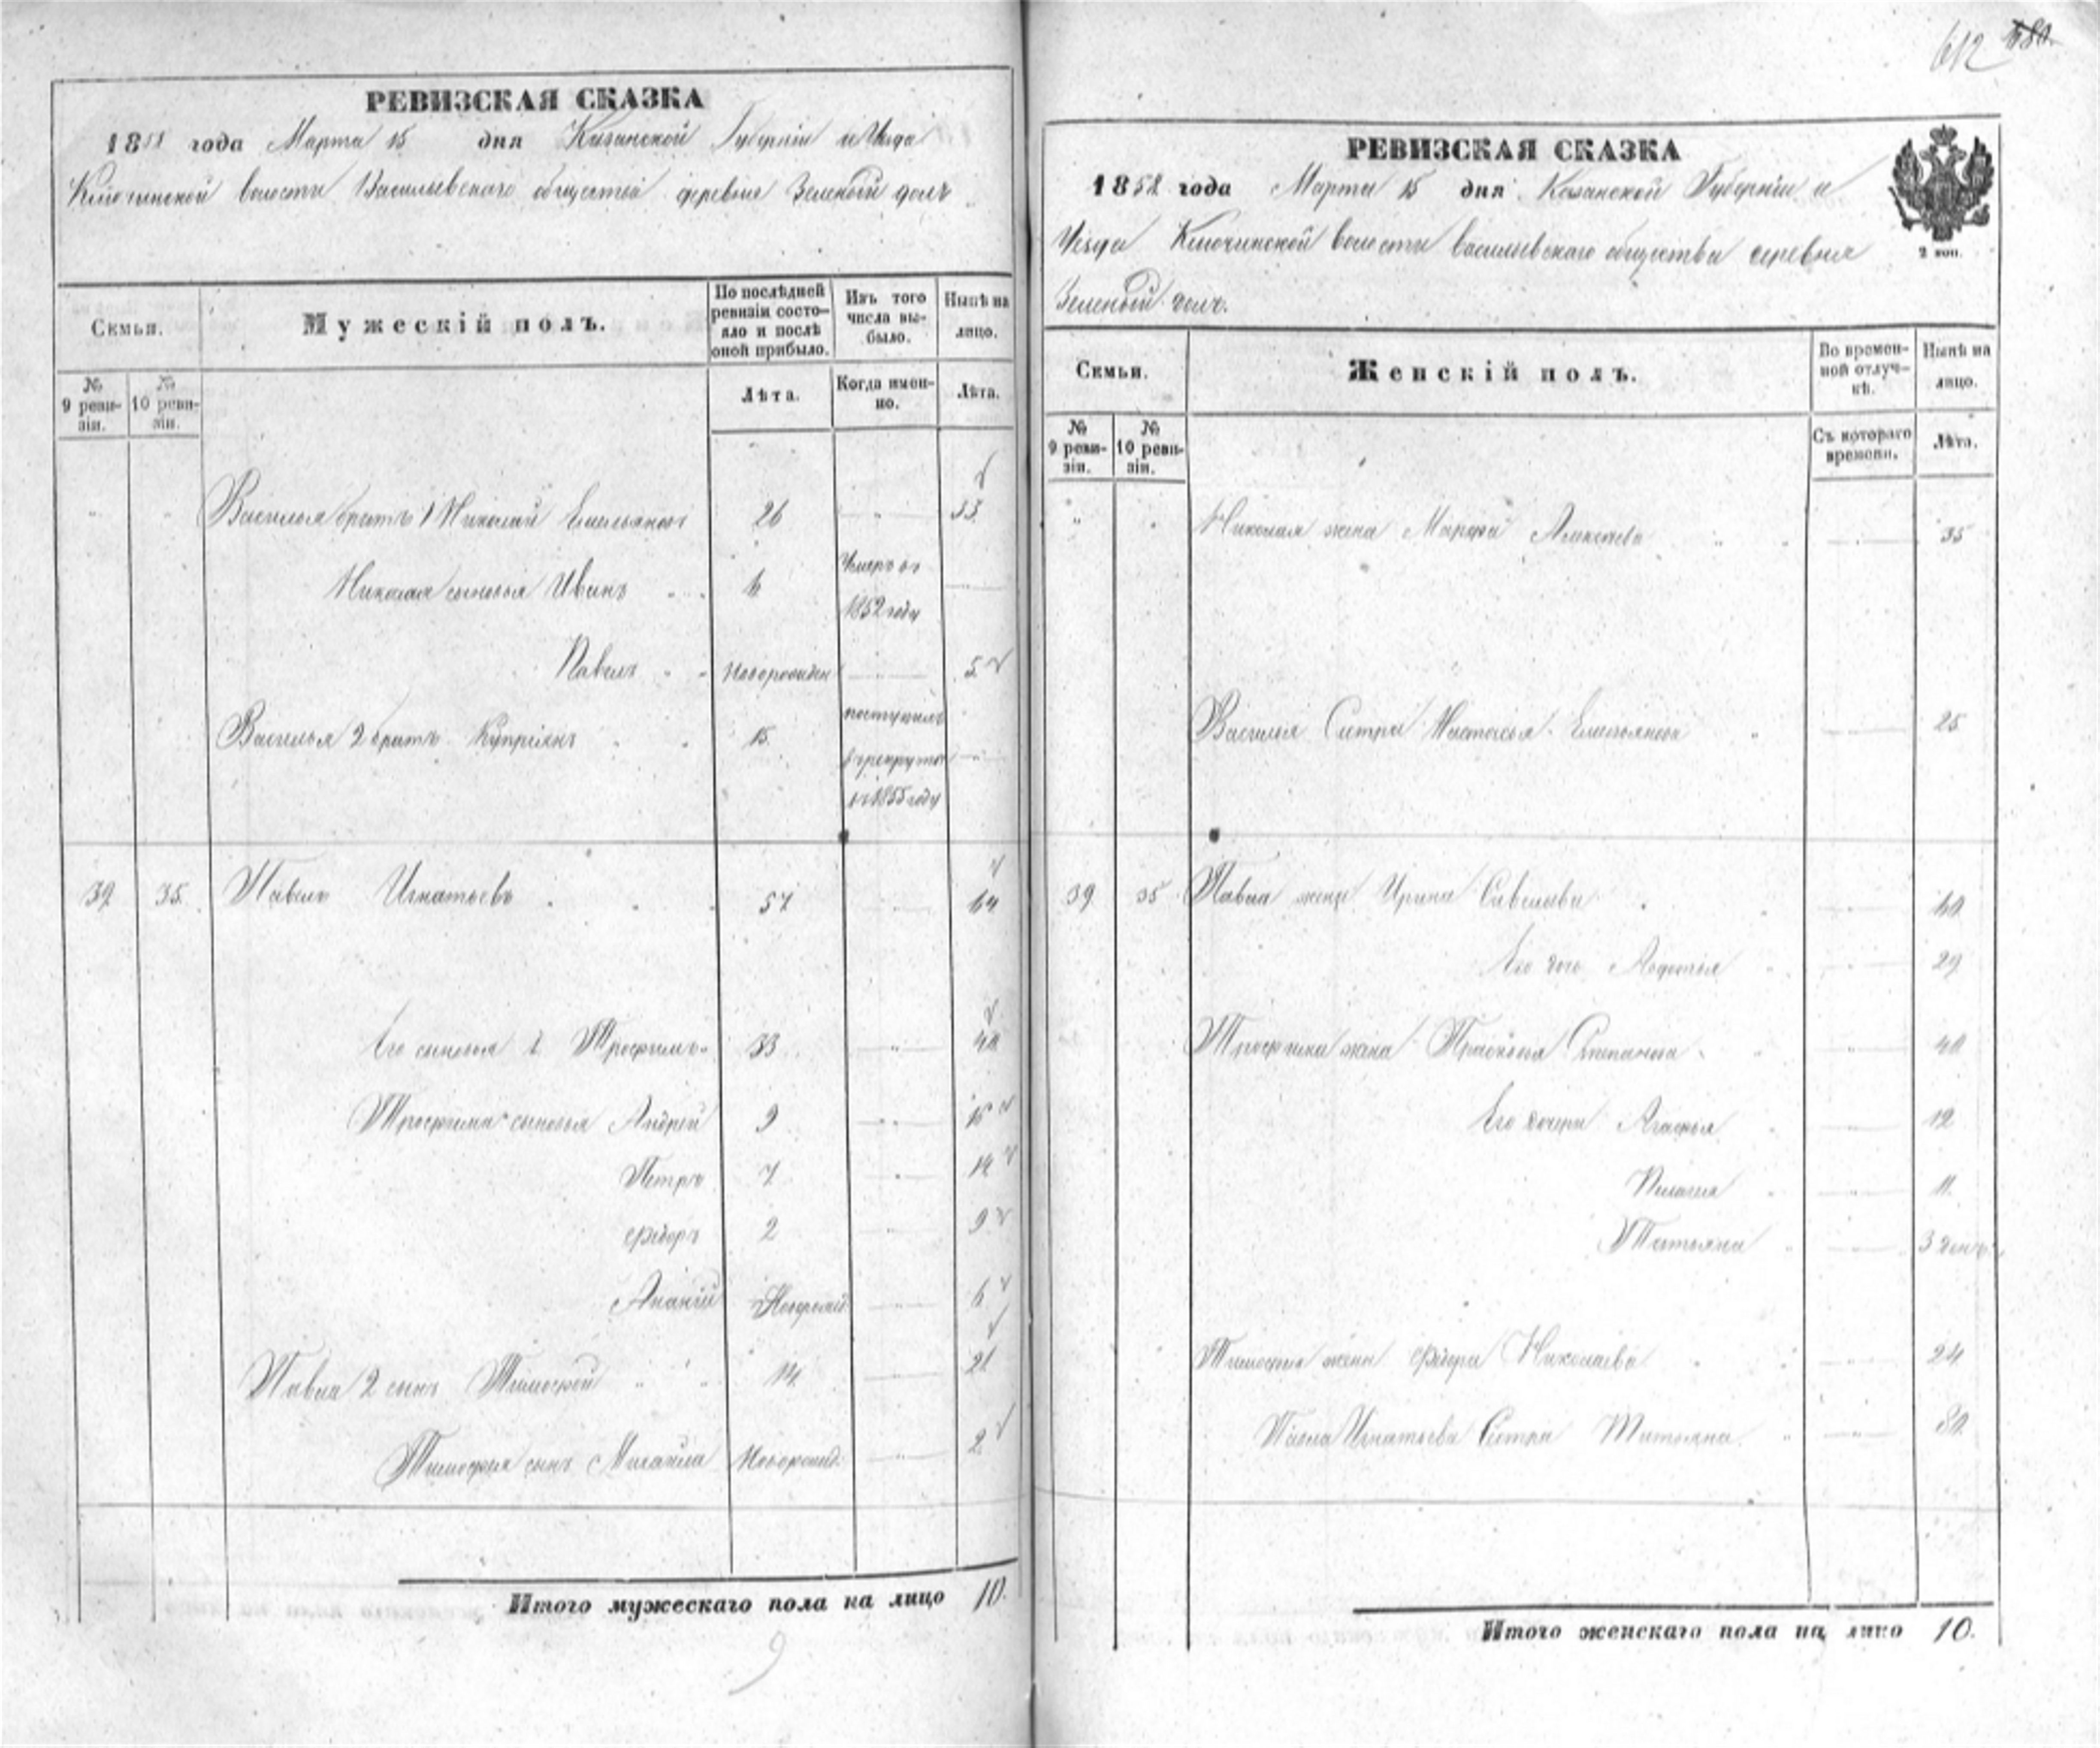 612 580.
РЕВИЗСКАЯ СКАЗКА
1858 года Марта 15 дня Казанской Губернiи и Уезда
Ключинской волости Васильевскаго общества деревни Зеленый долъ
Семьи.
Мужескiй полъ.
По послѣдней ревизiи состо-
яло и послѣ
оной прибыло.
Изъ того
числа вы-
было.
Нынѣ на
лицо.
№
9 реви-
зiи.
№
10 реви-
зiи.
Лѣта.
Когда имен-
но.
Лѣта.
Василья братъ 1 Николай Емельяновъ 26 33
Николая сыновья Иванъ 6 Умеръ въ
1852 году
Павелъ Новорожден 5
Василья 2 братъ Купрiянъ 15 поступилъ
в рекруты
въ 1855 году
39 35 Павелъ Игнатьевъ 57 64
Его сыновья 1 Трофимъ 33 40
Трофима сыновья Андрей 9 16
Петръ 7 14
Фёдоръ 2 9
Ананiй Новорожд. 6
Павла 2 сынъ Тимофей 14 21
Тимофея сынъ Михайла Новорожд. 2
Итого мужескаго пола на лицо 10.
9
РЕВИЗСКАЯ СКАЗКА
1858 года Марта 15 дня Казанской Губернiи и
Уезда Ключинской волости Васильевскаго общества деревни
Зеленый долъ.
2 коп.
Семьи.
Женскiй полъ.
Во времен-
ной отлуч-
кѣ.
Нынѣ на
лицо.
№
9 реви-
зiи.
№
10 реви-
зiи.
Съ котораго
времени.
Лѣта.
Николая жена Марфа Алексеева 35
Василья Систра Настасья Емельянова 25
39 35 Павла жена Ирина Савельева 60
Его дочь Авдотья 29
Трофима жена Прасковья Степанова 40
Его дочери Агафья 12
Пелагея 11
Татьяна 3 дней
Тимофея жена Фёдора Николаева 24
Павла Игнатьева Систра Татьяна 80
Итого женскаго пола на лицо 10.